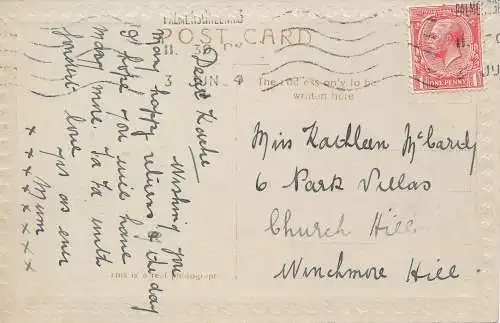 PALMERS GREEN N.13
POST CARD
The address only to be
written here
ONE PENNY
Dear Kathie
Wishing you
many happy returns of the day
& hope you will have
many more. Ta Ta until
fondest love
yrs as ever
Mum
x x x x x x x
Miss Kathleen McCardy
6 Park Villas
Church Hill
Winchmore Hill
This is a real photograph